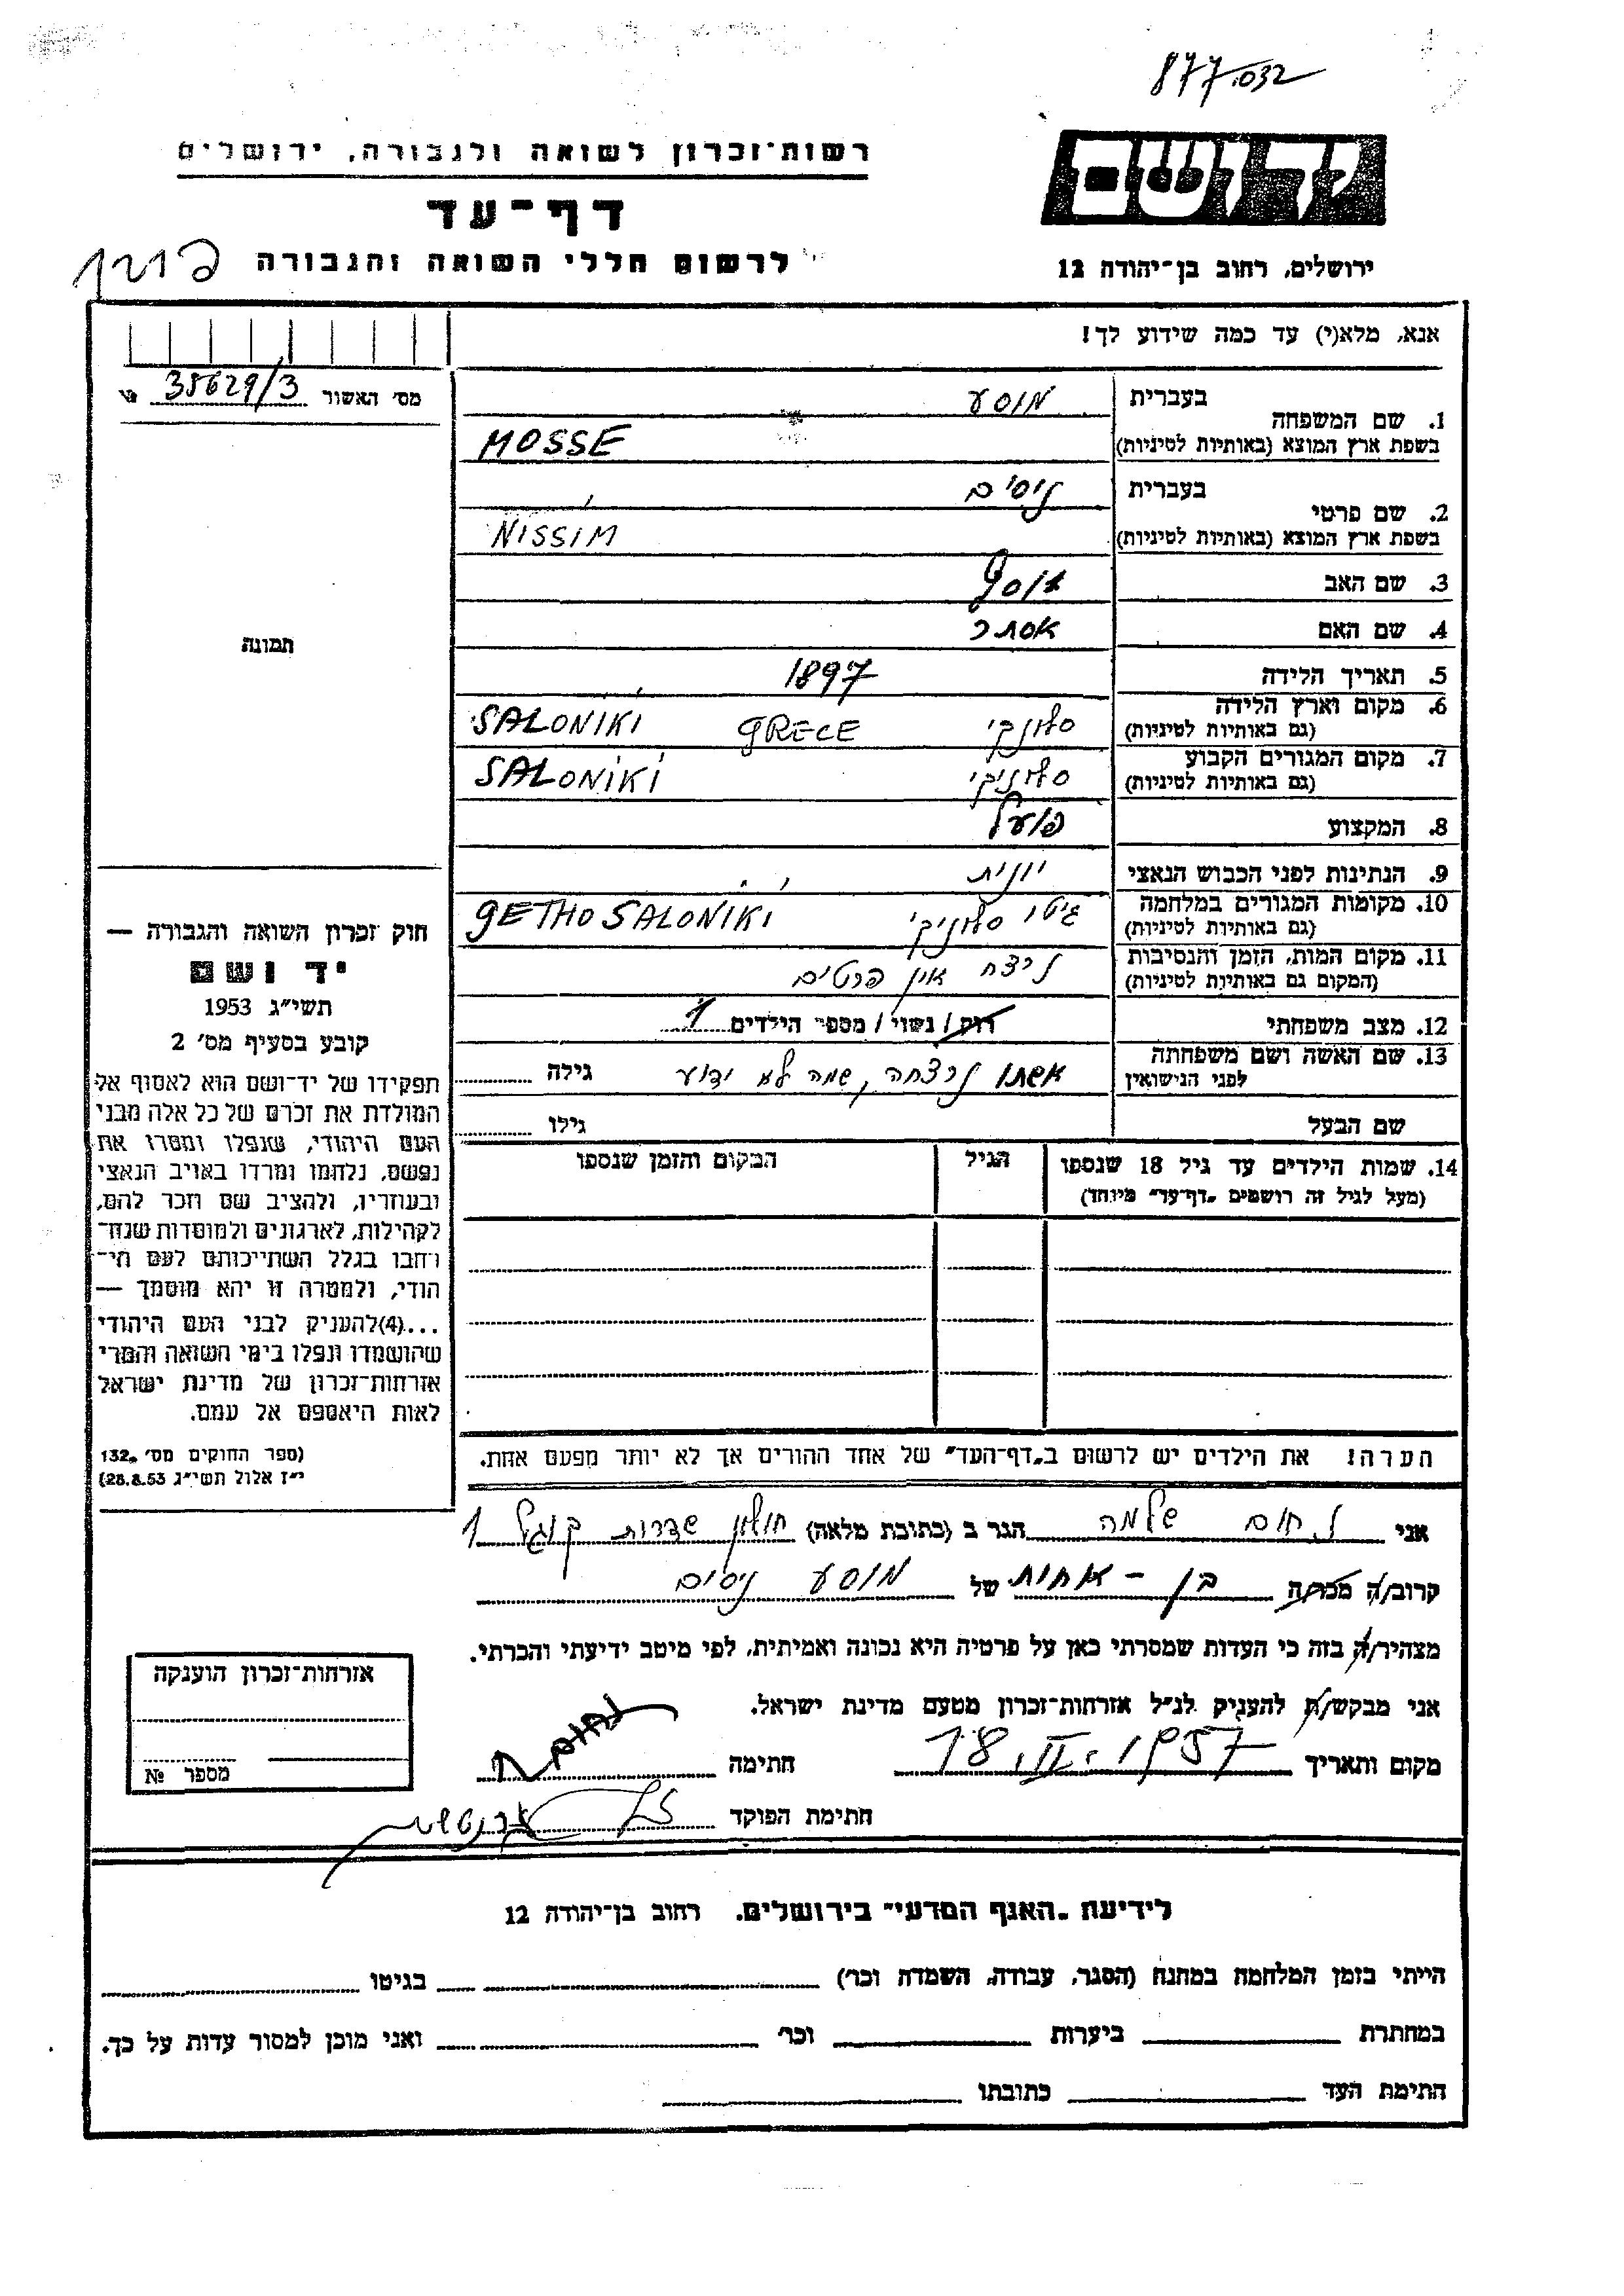 877.032
רשות־זכרון לשואה ולגבורה, ירושלים
יד ושם
דף־עד
לרשום חללי השואה והגבורה
ירושלים, רחוב בן־יהודה 12
אנא, מלא(י) עד כמה שידוע לך!
מס׳ האשור 35629/3
1. שם המשפחה
בעברית מוסע
בשפת ארץ המוצא (באותיות לטיניות) MOSSE
2. שם פרטי
בעברית ניסים
בשפת ארץ המוצא (באותיות לטיניות) NISSIM
3. שם האב יוסף
4. שם האם אסתר
5. תאריך הלידה 1897
6. מקום וארץ הלידה
(גם באותיות לטיניות) סלוניקי GRECE SALONIKI
7. מקום המגורים הקבוע
(גם באותיות לטיניות) סלוניקי SALONIKI
8. המקצוע פועל
9. הנתינות לפני הכבוש הנאצי יוונית
10. מקומות המגורים במלחמה
(גם באותיות לטיניות) גיטו סלוניקי GETHO SALONIKI
11. מקום המות, הזמן והנסיבות
(המקום גם באותיות לטיניות) נרצח אין פרטים
12. מצב משפחתי רוק / נשוי / מספר הילדים 1
13. שם האשה ושם משפחתה
לפני הנישואין אשתו נרצחה, שמה לא ידוע גילה
שם הבעל גילו
14. שמות הילדים עד גיל 18 שנספו הגיל המקום והזמן שנספו
(מעל לגיל זה רושמים „דף־עד״ מיוחד)
הערה! את הילדים יש לרשום ב„דף־העד״ של אחד ההורים אך לא יותר מפעם אחת.
תמונה
חוק זכרון השואה והגבורה —
יד ושם
תשי״ג 1953
קובע בסעיף מס׳ 2
תפקידו של יד־ושם הוא לאסוף אל
המולדת את זכרם של כל אלה מבני
העם היהודי, שנפלו ומסרו את
נפשם, נלחמו ומרדו באויב הנאצי
ובעוזריו, ולהציב שם וזכר להם,
לקהילות, לארגונים ולמוסדות שנח־
רחבו בגלל השתייכותם לעם הי־
הודי, ולמטרה זו יהא מוסמך —
...(4)להעניק לבני העם היהודי
שהושמדו ונפלו בימי השואה והמרי
אזרחות־זכרון של מדינת ישראל
לאות היאספם אל עמם.
(ספר החוקים מס׳ 132,
י״ז אלול תשי״ג 28.8.53)
אני נחום שלמה הגר ב (כתובת מלאה) חולון שדרות קוגל 1
קרוב/ה מכר/ה בן - אחות של מוסע ניסים
מצהיר/ה בזה כי העדות שמסרתי כאן על פרטיה היא נכונה ואמיתית, לפי מיטב ידיעתי והכרתי.
אני מבקש/ת להעניק לנ״ל אזרחות־זכרון מטעם מדינת ישראל.
מקום ותאריך 18.II.1957 חתימה
חתימת הפוקד
אזרחות־זכרון הוענקה
מספר №
לידיעת „האגף המדעי״ בירושלים. רחוב בן־יהודה 12
הייתי בזמן המלחמה במחנה (הסגר, עבודה, השמדה וכר׳) בגיטו
במחתרת ביערות וכר׳ ואני מוכן למסור עדות על כך.
חתימת העד כתובתו